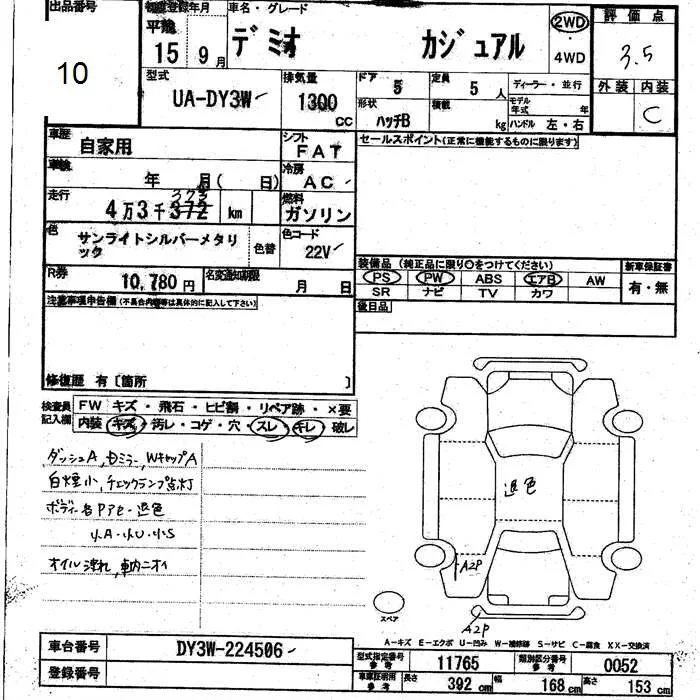 出品番号
10
初度登録年月
平成
15 9月
車名・グレード
デミオ カジュアル
2WD
4WD
評価点
3.5
外装 内装
C
型式
UA-DY3W
排気量
1300
CC
ドア
5
定員
5人
ディーラー・並行
形状
ハッチB
積載
kg
モデル年式 年
ハンドル 左・右
車歴
自家用
シフト
FAT
セールスポイント(正常に機能するものに限ります)
車検
年 月( 日)
冷房
AC
走行
373
4万3千372 km
燃料
ガソリン
色
サンライトシルバーメタリック
色替
色コード
22V
装備品(純正品に限り○をつけてください)
新車保証書
PS PW ABS エアB AW
SR ナビ TV カワ
有・無
R券
10,780円
名変通知期限
月 日
後日品
注意事項申告欄(不具合内容等は具体的に記入して下さい)
修復歴 有〔箇所 〕
検査員記入欄
FW キズ・飛石・ヒビ割・リペア跡・×要
内装 キズ・汚レ・コゲ・穴・スレ・キレ・破レ
ダッシュA,白ミラー,WキャップA
白煙小,チェックランプ点灯
ボディー各PアE・退色
小A・小U・小S
オイル漏れ,車内ニオイ
退色
A2P
A2P
スペア
A-キズ E-エクボ U-凹み W-補修跡 S-サビ C-腐食 XX-交換済
車台番号
DY3W-224506
登録番号
型式指定番号
参考
11765
類別区分番号
参考
0052
車車証明用
参考
長さ 392cm
幅 168cm
高さ 153cm